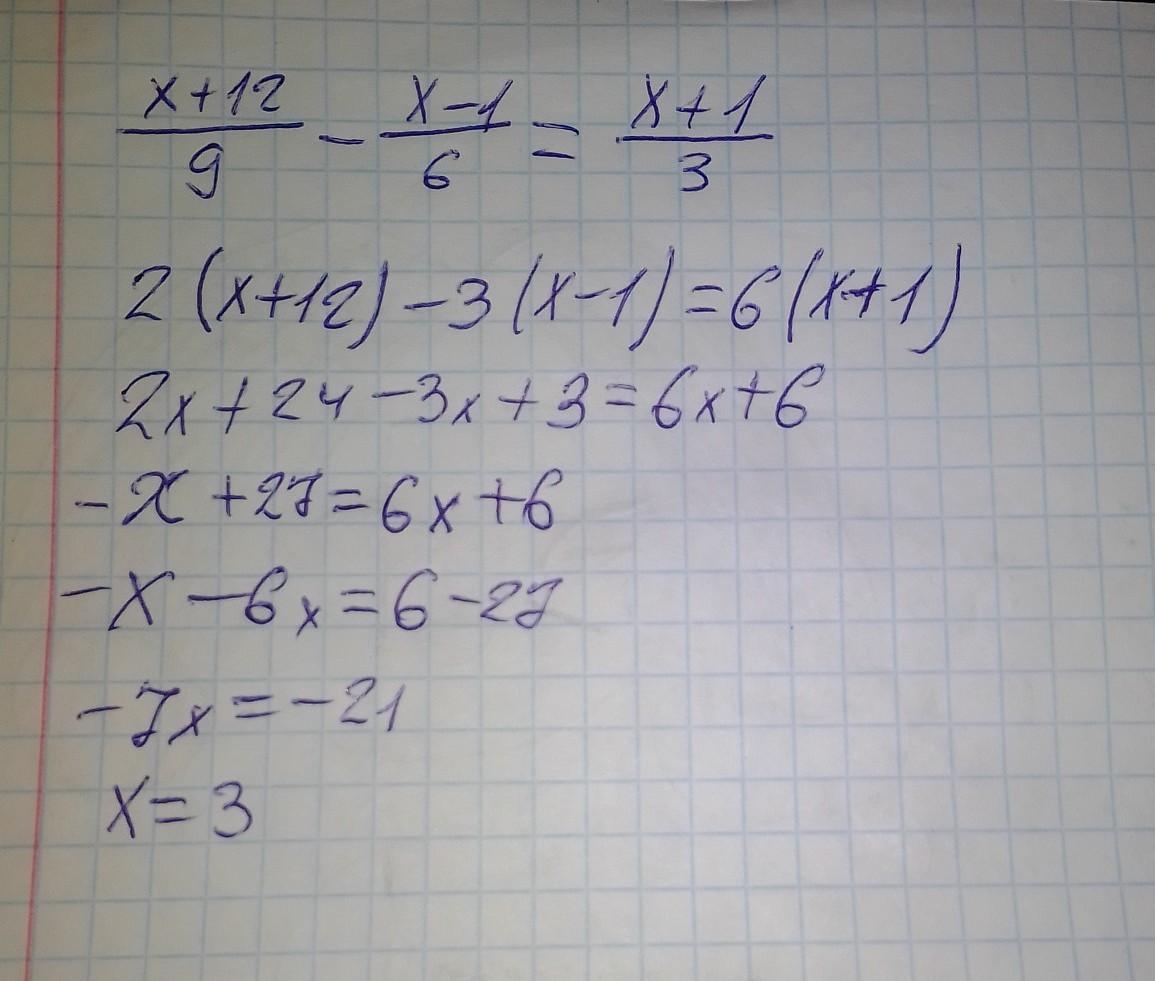 x+12/9 - x-1/6 = x+1/3
2(x+12)-3(x-1)=6(x+1)
2x+24-3x+3=6x+6
-x+27=6x+6
-x-6x=6-27
-7x=-21
x=3